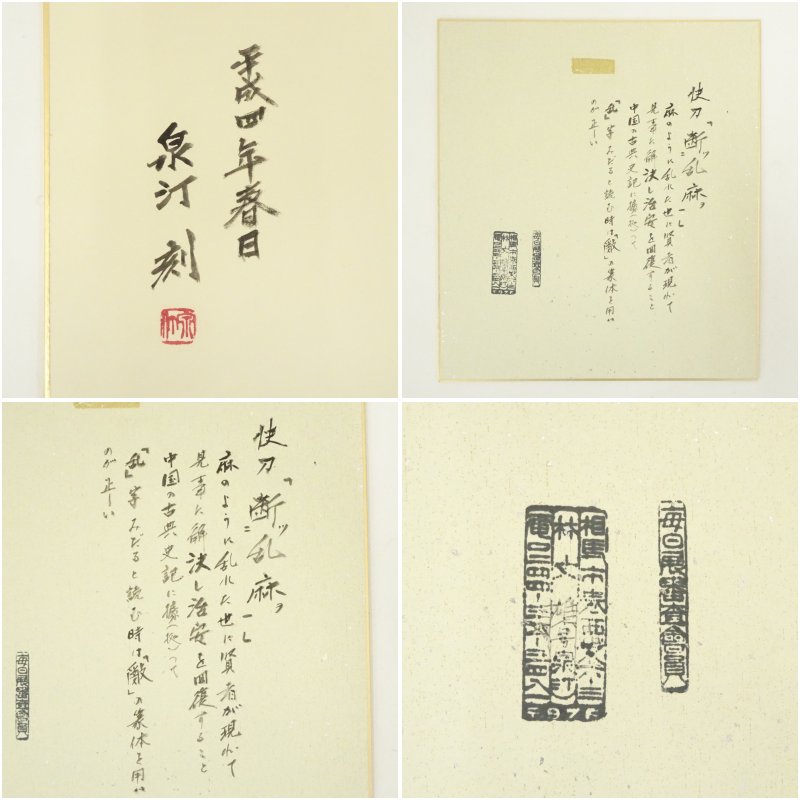 平成四年春日
泉汀 刻
快刀「断ッ乱麻ヲ」
麻のように乱れた世に賢者が現れて
見事に解決し治安を回復すること
中国の古典史記に據(拠)って
「乱」字みだると読む時は「𢿢」の篆体を用い
のが正しい
毎日展審査會員
快刀「断ッ乱麻ヲ」
麻のように乱れた世に賢者が現れて
見事に解決し治安を回復すること
中国の古典史記に據(拠)って
「乱」字みだると読む時は
のが正しい
毎日展審査會員
毎日展審査會員
相馬市